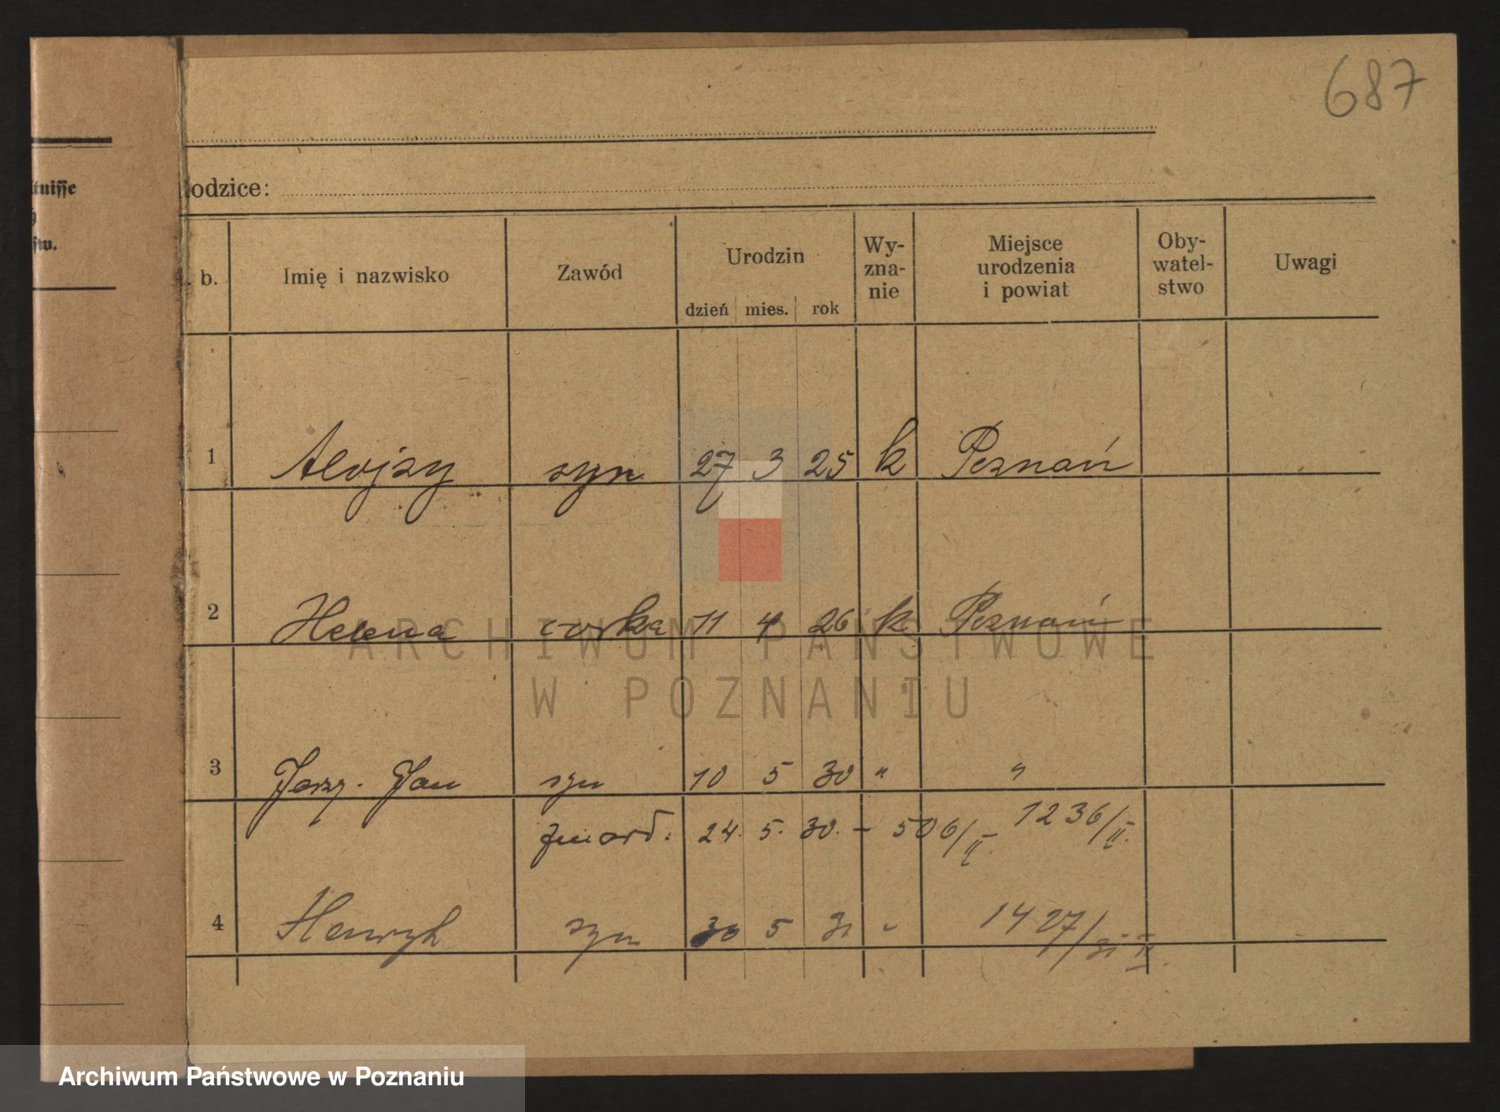 687
tnisse
stw.
odzice:
b. Imię i nazwisko Zawód Urodzin dzień mies. rok Wy-zna-nie Miejsce urodzenia i powiat Oby-watel-stwo Uwagi
1 Alojzy syn 27 3 25 k Poznań
2 Helena corka 11 4 26 k Poznań
3 Jerzy Jan syn 10 5 30 " "
zmarł. 24. 5. 30. – 506/II. 1236/II.
4 Henryk syn 30 5 31 " 1427/31 II
ARCHIWUM PAŃSTWOWE
W POZNANIU
Archiwum Państwowe w Poznaniu